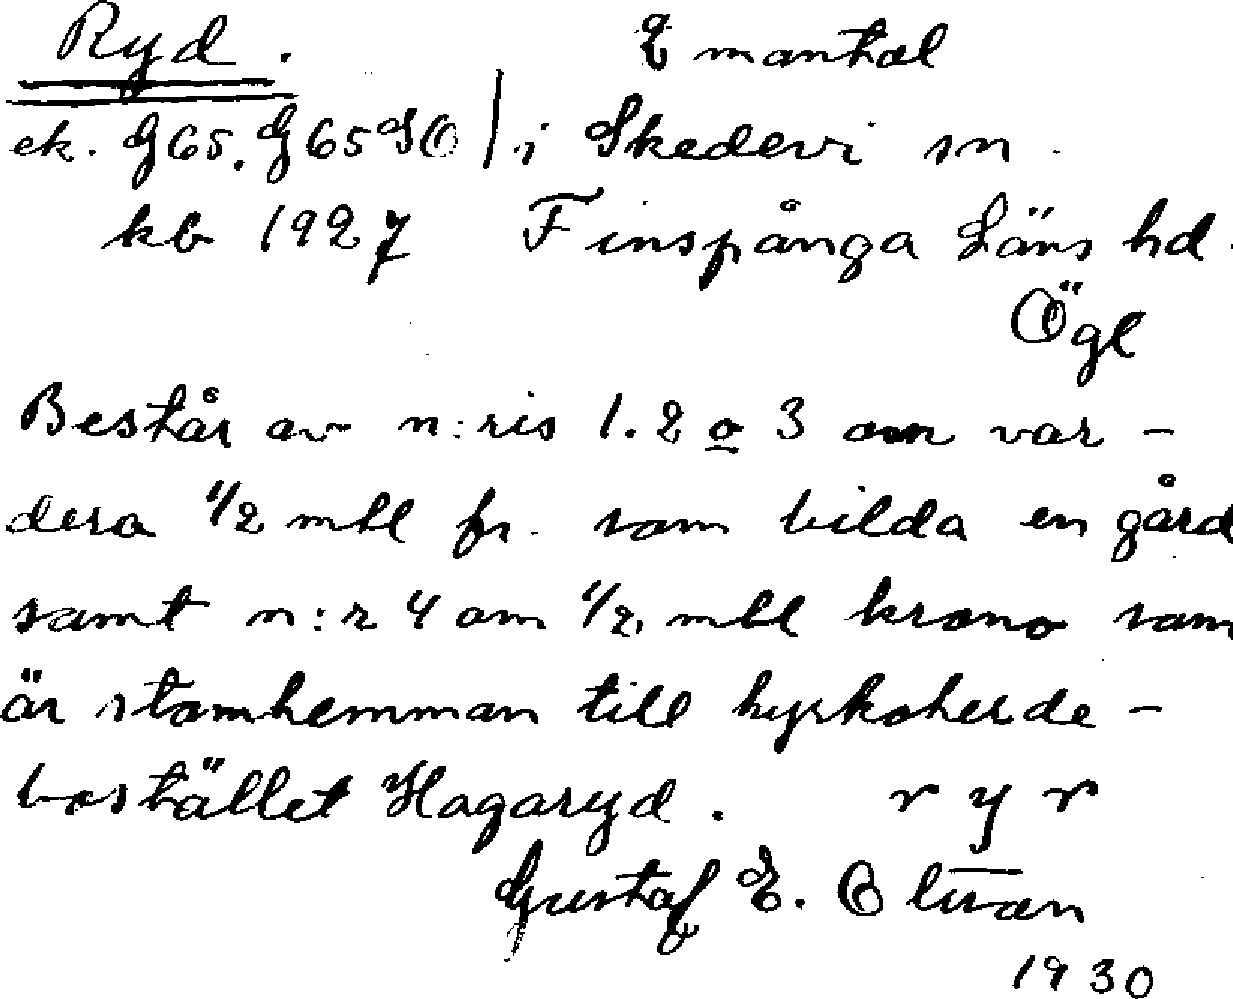 Ryd. 2 mantal
ek. G65. G65SO / i Skedevi sn.
kb 1927 Finspånga Läns hd.
Ögl
Består av n:ris 1. 2 o 3 om var-
dera 1/2 mtl fr. som bilda en gård
samt n:r 4 om 1/2 mtl krono som
är stomhemman till kyrkoherde-
bostället Hagaryd. r y r
Gustaf E.
1930